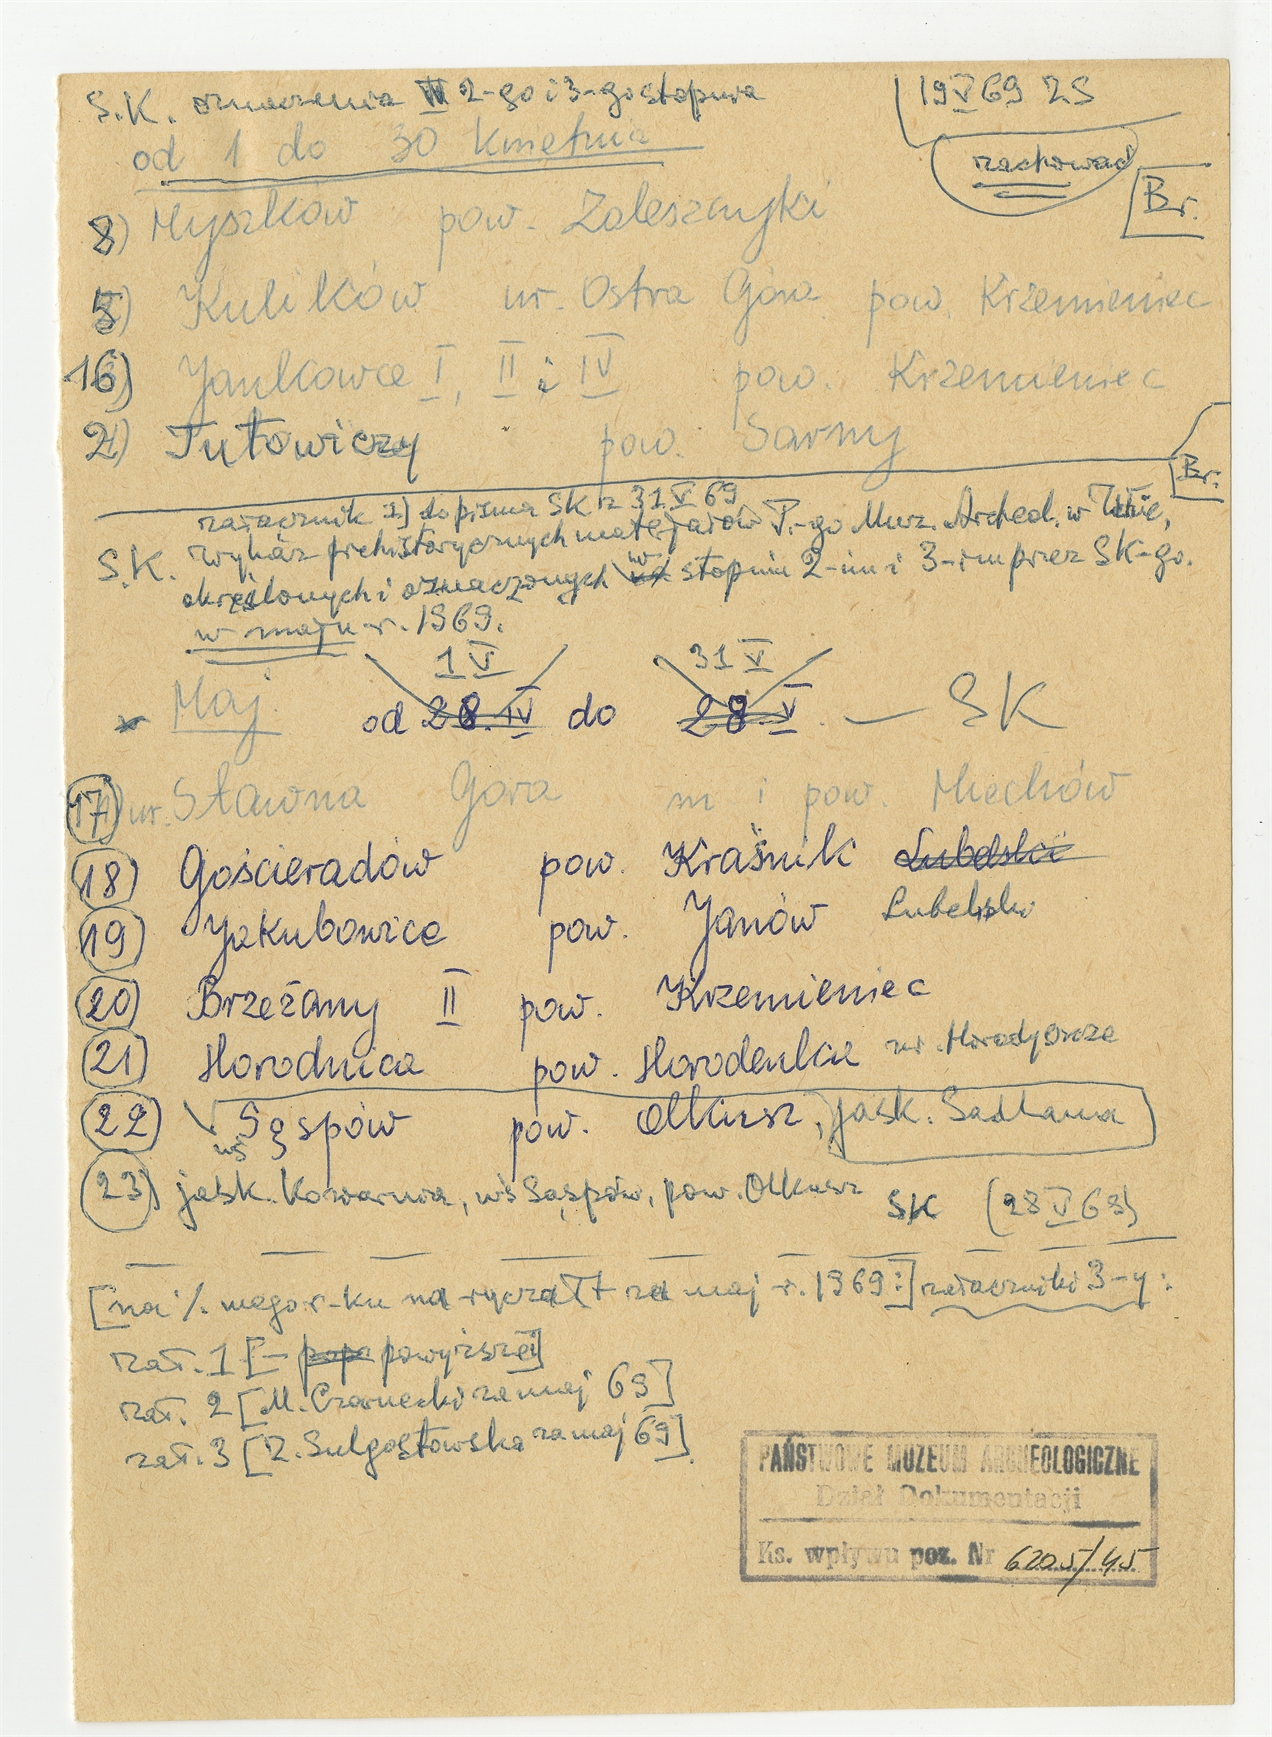 S.K. oznaczenia 2-go i 3-go stopnia
19 V 69 ZS
od 1 do 30 Kwietnia
zachować
Br.
8) Myszków pow. Zaleszczyki
5) Kulików ur. Ostra Góra pow. Krzemieniec
16) Jankowce I, II i IV pow. Krzemieniec
2) Tutowiczy pow. Sarny
Br.
załącznik 1) do pisma SK z 31 V 69
S.K. Wykaz prehistorycznych materjałów P-go Muz. Archeol. w
określonych i oznaczonych w stopniu 2-im i 3-im przez SK-go.
w maju r. 1969.
1 V 31 V
Maj od 28.IV do 28.V. — SK
17) ur. Sławna Góra m i pow. Miechów
18) Gościeradów pow. Kraśnik Lubelski
19) Jakubowice pow. Janów Lubelski
20) Brzeżany II pow. Krzemieniec
21) Horodnica pow. Horodenka ur. Horodyszcze
22) wś Sąspów pow. Olkusz, jask. Sadlana
23) jask. Koziarnia, wś Sąspów, pow. Olkusz SK (28 V 69)
[na %. wagor-ku na ryczałt za maj r. 1969:] załączniki 3-y:
zał. 1 [– popr powyższe]
zał. 2 [M. Czarnecki za maj 69]
zał. 3 [Z. Sulgostowska za maj 69]
PAŃSTWOWE MUZEUM ARCHEOLOGICZNE
Dział Dokumentacji
Ks. wpływu poz. Nr 6205/45